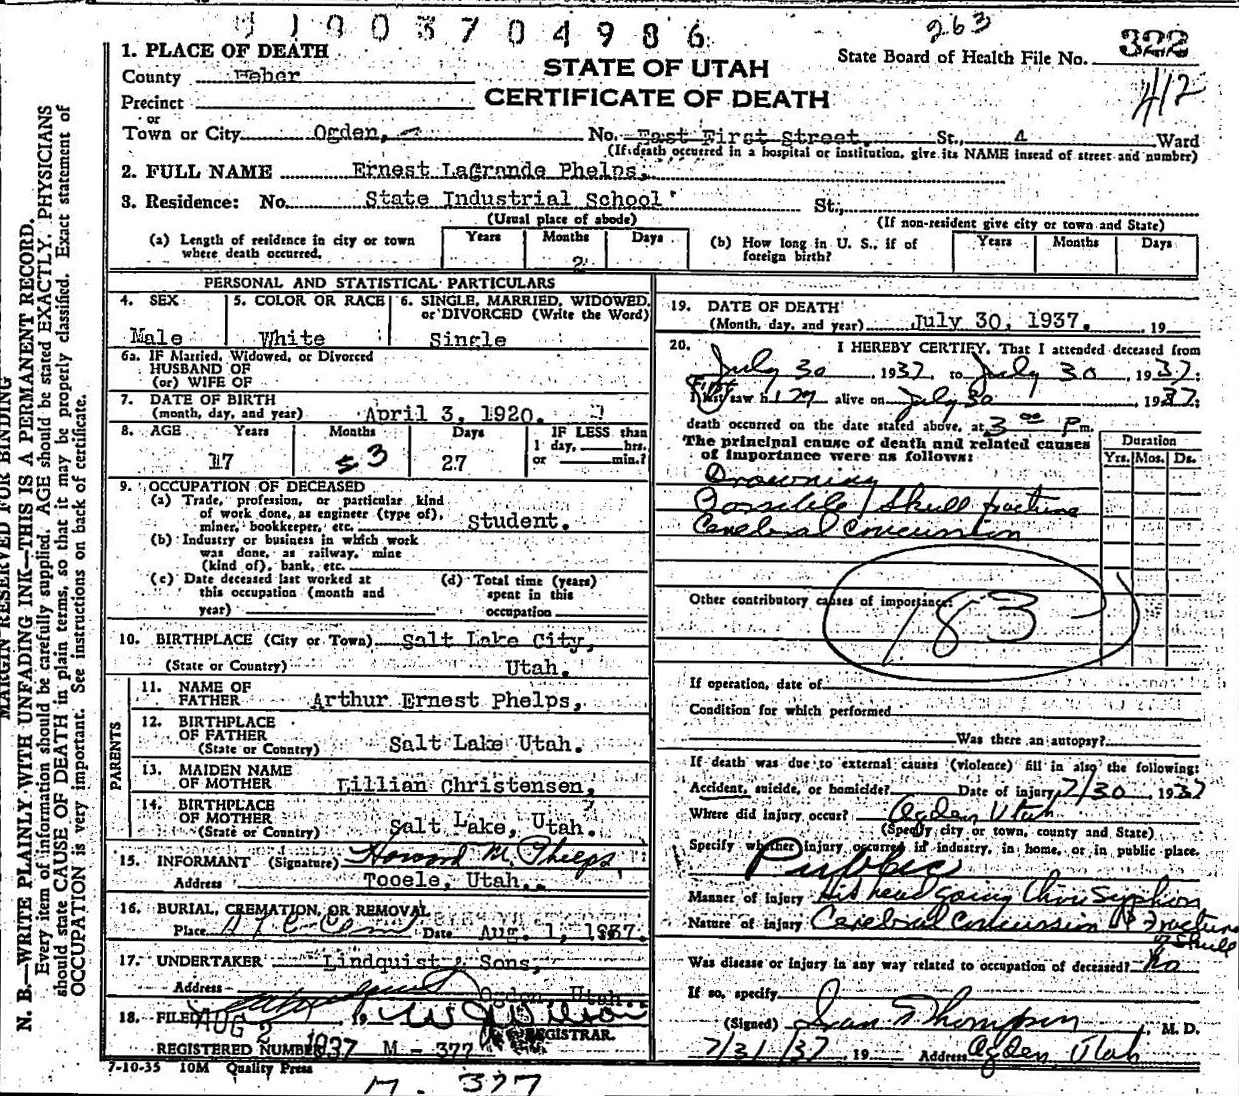 11903704986
263
State Board of Health File No. 322
412
1. PLACE OF DEATH
STATE OF UTAH
CERTIFICATE OF DEATH
County Weber
Precinct
or
Town or City Ogden, No. East First Street, St., 4 Ward
(If death occurred in a hospital or institution, give its NAME insead of street and number)
2. FULL NAME Ernest LaGrande Phelps,
3. Residence: No. State Industrial School St.,
(Usual place of abode) (If non-resident give city or town and State)
(a) Length of residence in city or town where death occurred. Years Months 2 Days
(b) How long in U. S., if of foreign birth? Years Months Days
PERSONAL AND STATISTICAL PARTICULARS
4. SEX Male
5. COLOR OR RACE White
6. SINGLE, MARRIED, WIDOWED, or DIVORCED (Write the Word) Single
6a. IF Married, Widowed, or Divorced
HUSBAND OF
(or) WIFE OF
7. DATE OF BIRTH
(month, day, and year) April 3, 1920.
8. AGE Years Months Days IF LESS than
1 day, hrs.
or min.?
17 3 27
9. OCCUPATION OF DECEASED
(a) Trade, profession, or particular kind
of work done, as engineer (type of),
miner, bookkeeper, etc. Student.
(b) Industry or business in which work
was done, as railway, mine
(kind of), bank, etc.
(c) Date deceased last worked at
this occupation (month and
year)
(d) Total time (years)
spent in this
occupation
10. BIRTHPLACE (City or Town) Salt Lake City,
(State or Country) Utah.
PARENTS
11. NAME OF
FATHER Arthur Ernest Phelps,
12. BIRTHPLACE
OF FATHER
(State or Country) Salt Lake Utah.
13. MAIDEN NAME
OF MOTHER Lillian Christensen,
14. BIRTHPLACE
OF MOTHER
(State or Country) Salt Lake, Utah.
15. INFORMANT (Signature) Howard M. Phelps
Address Tooele, Utah.
16. BURIAL, CREMATION, OR REMOVAL
Place Date Aug. 1, 1937.
17. UNDERTAKER Lindquist & Sons,
Address Ogden, Utah.
18. FILED AUG 2 1937
REGISTRAR.
REGISTERED NUMBER M - 377
7-10-35 10M Quality Press
M. 377
19. DATE OF DEATH
(Month, day, and year) July 30, 1937. 19
20. I HEREBY CERTIFY, That I attended deceased from
July 30, 1937, to July 30, 1937:
First saw him alive on July 30 1937:
death occurred on the date stated above, at 3 00 P m.
The principal cause of death and related causes
of importance were as follows:
Duration
Yrs. Mos. Ds.
Drowning
Possible skull fracture
Cerebral Concussion
Other contributory causes of importance:
183
If operation, date of
Condition for which performed
Was there an autopsy?
If death was due to external causes (violence) fill in also the following:
Accident, suicide, or homicide? Date of injury 7/30, 1937
Where did injury occur? Ogden Utah
(Specify city or town, county and State)
Specify whether injury occurred in industry, in home, or in public place.
Public
Manner of injury His head going thru Syphon
Nature of injury Cerebral Concussion & Fracture of Skull
Was disease or injury in any way related to occupation of deceased? No
If so, specify
(Signed) Ivan Thompson, M. D.
7/31/37, 19 Address Ogden, Utah
MARGIN RESERVED FOR BINDING
N. B.—WRITE PLAINLY WITH UNFADING INK—THIS IS A PERMANENT RECORD.
Every item of information should be carefully supplied. AGE should be stated EXACTLY. PHYSICIANS
should state CAUSE OF DEATH in plain terms, so that it may be properly classified. Exact statement of
OCCUPATION is very important. See instructions on back of certificate.